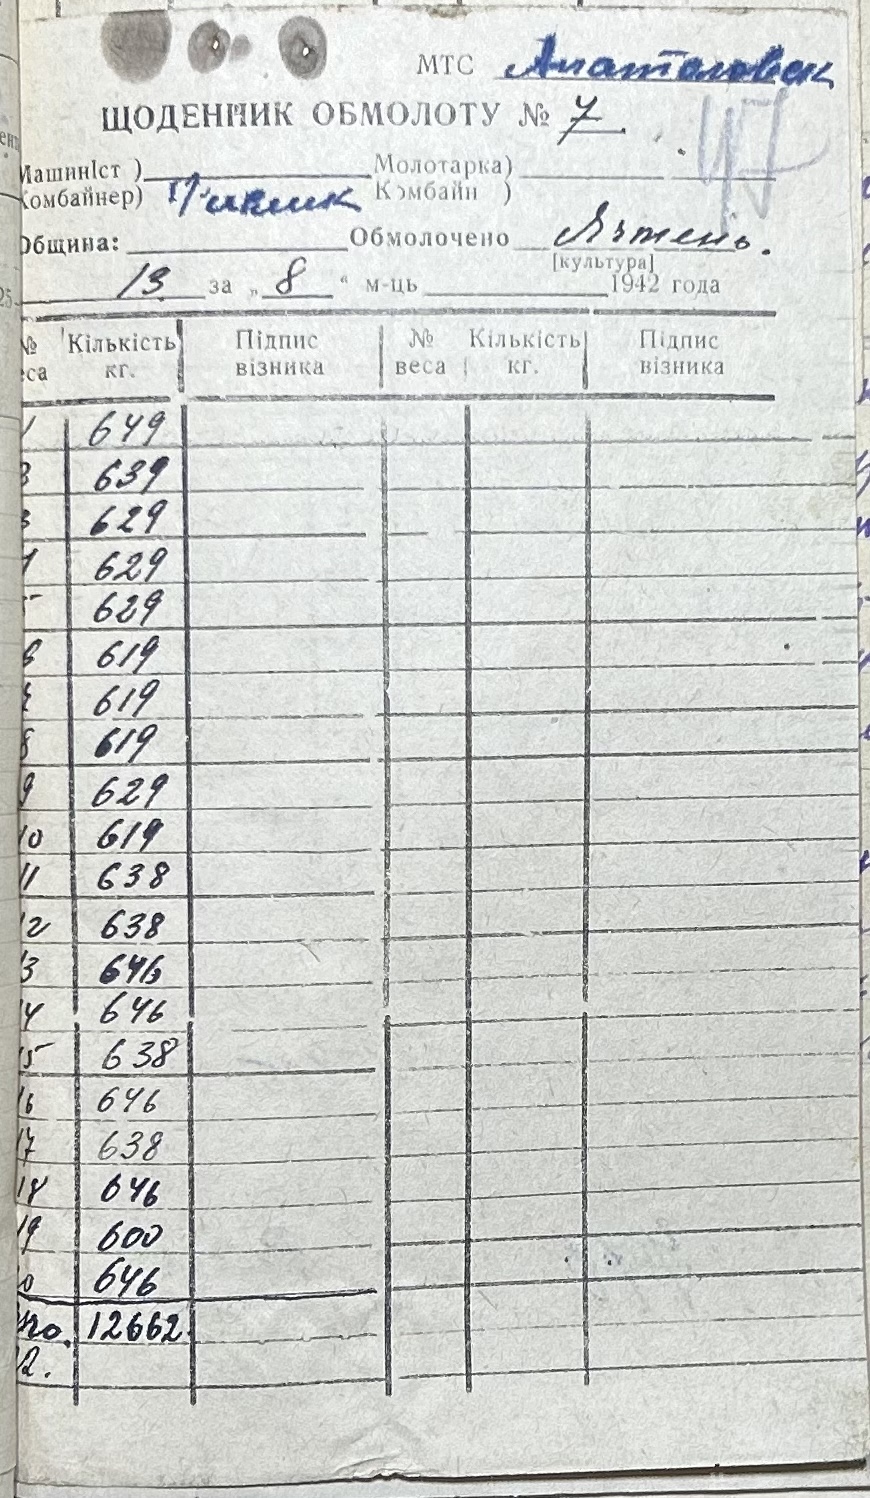 МТС Анатоловск
ЩОДЕННИК ОБМОЛОТУ № 7
Машиніст ) Молотарка)
Комбайнер) Комбайн )
Община: Обмолочено Ячмень.
[культура]
13 за „ 8 “ м-ць 1942 года
№ Кількість Підпис № Кількість Підпис
веса кг. візника веса кг. візника
1 649
2 639
3 629
4 629
5 629
6 619
7 619
8 619
9 629
10 619
11 638
12 638
13 646
14 646
15 638
16 646
17 638
18 646
19 600
20 646
12662